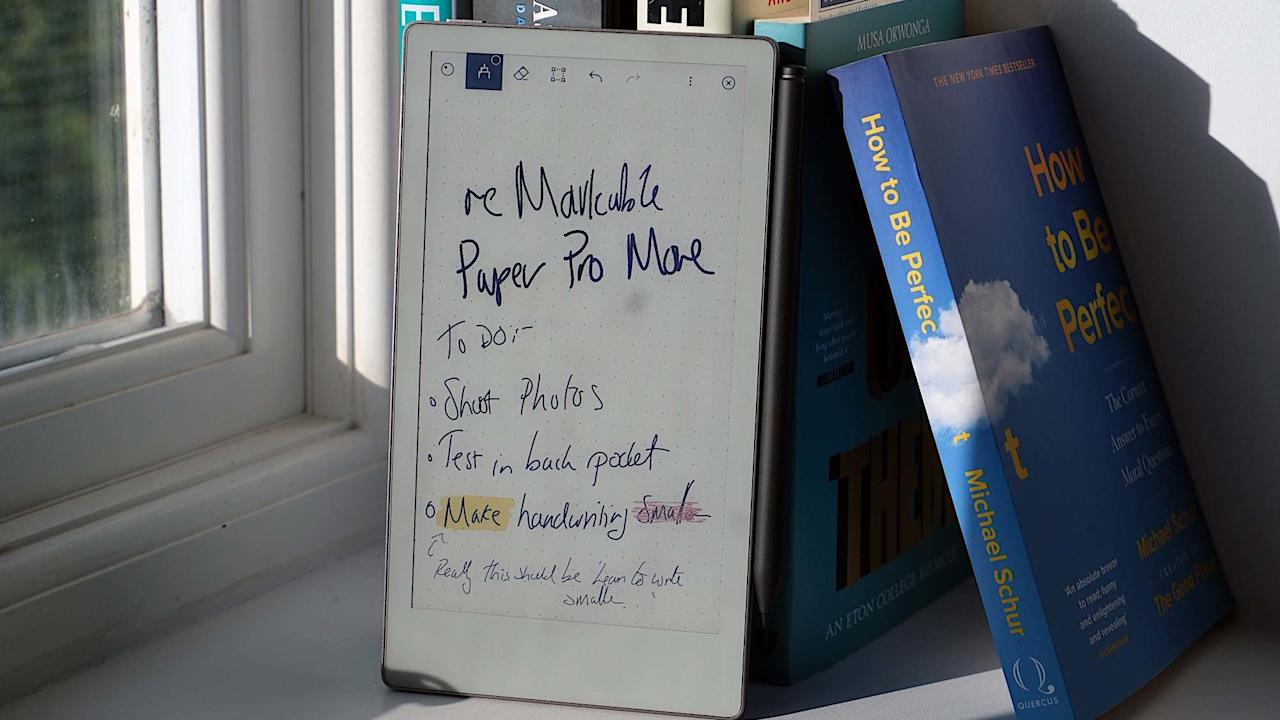 re Markable
Paper Pro Move
To Do:-
Shoot Photos
Test in back pocket
Make handwriting Smaller
Really this should be 'Learn to write
smaller.'
MUSA OKWONGA
THEM
AN ETON COLLEGE MEMOIR
How to Be Perfect
Michael Schur
QUERCUS
THE NEW YORK TIMES BESTSELLER
How
to Be
Perfect
The Correct
Answer to Every
Moral Question
Michael Schur
CREATOR OF
The Good Place
'An absolute breeze
to read: funny
and enlightening
and revealing'
GUARDIAN